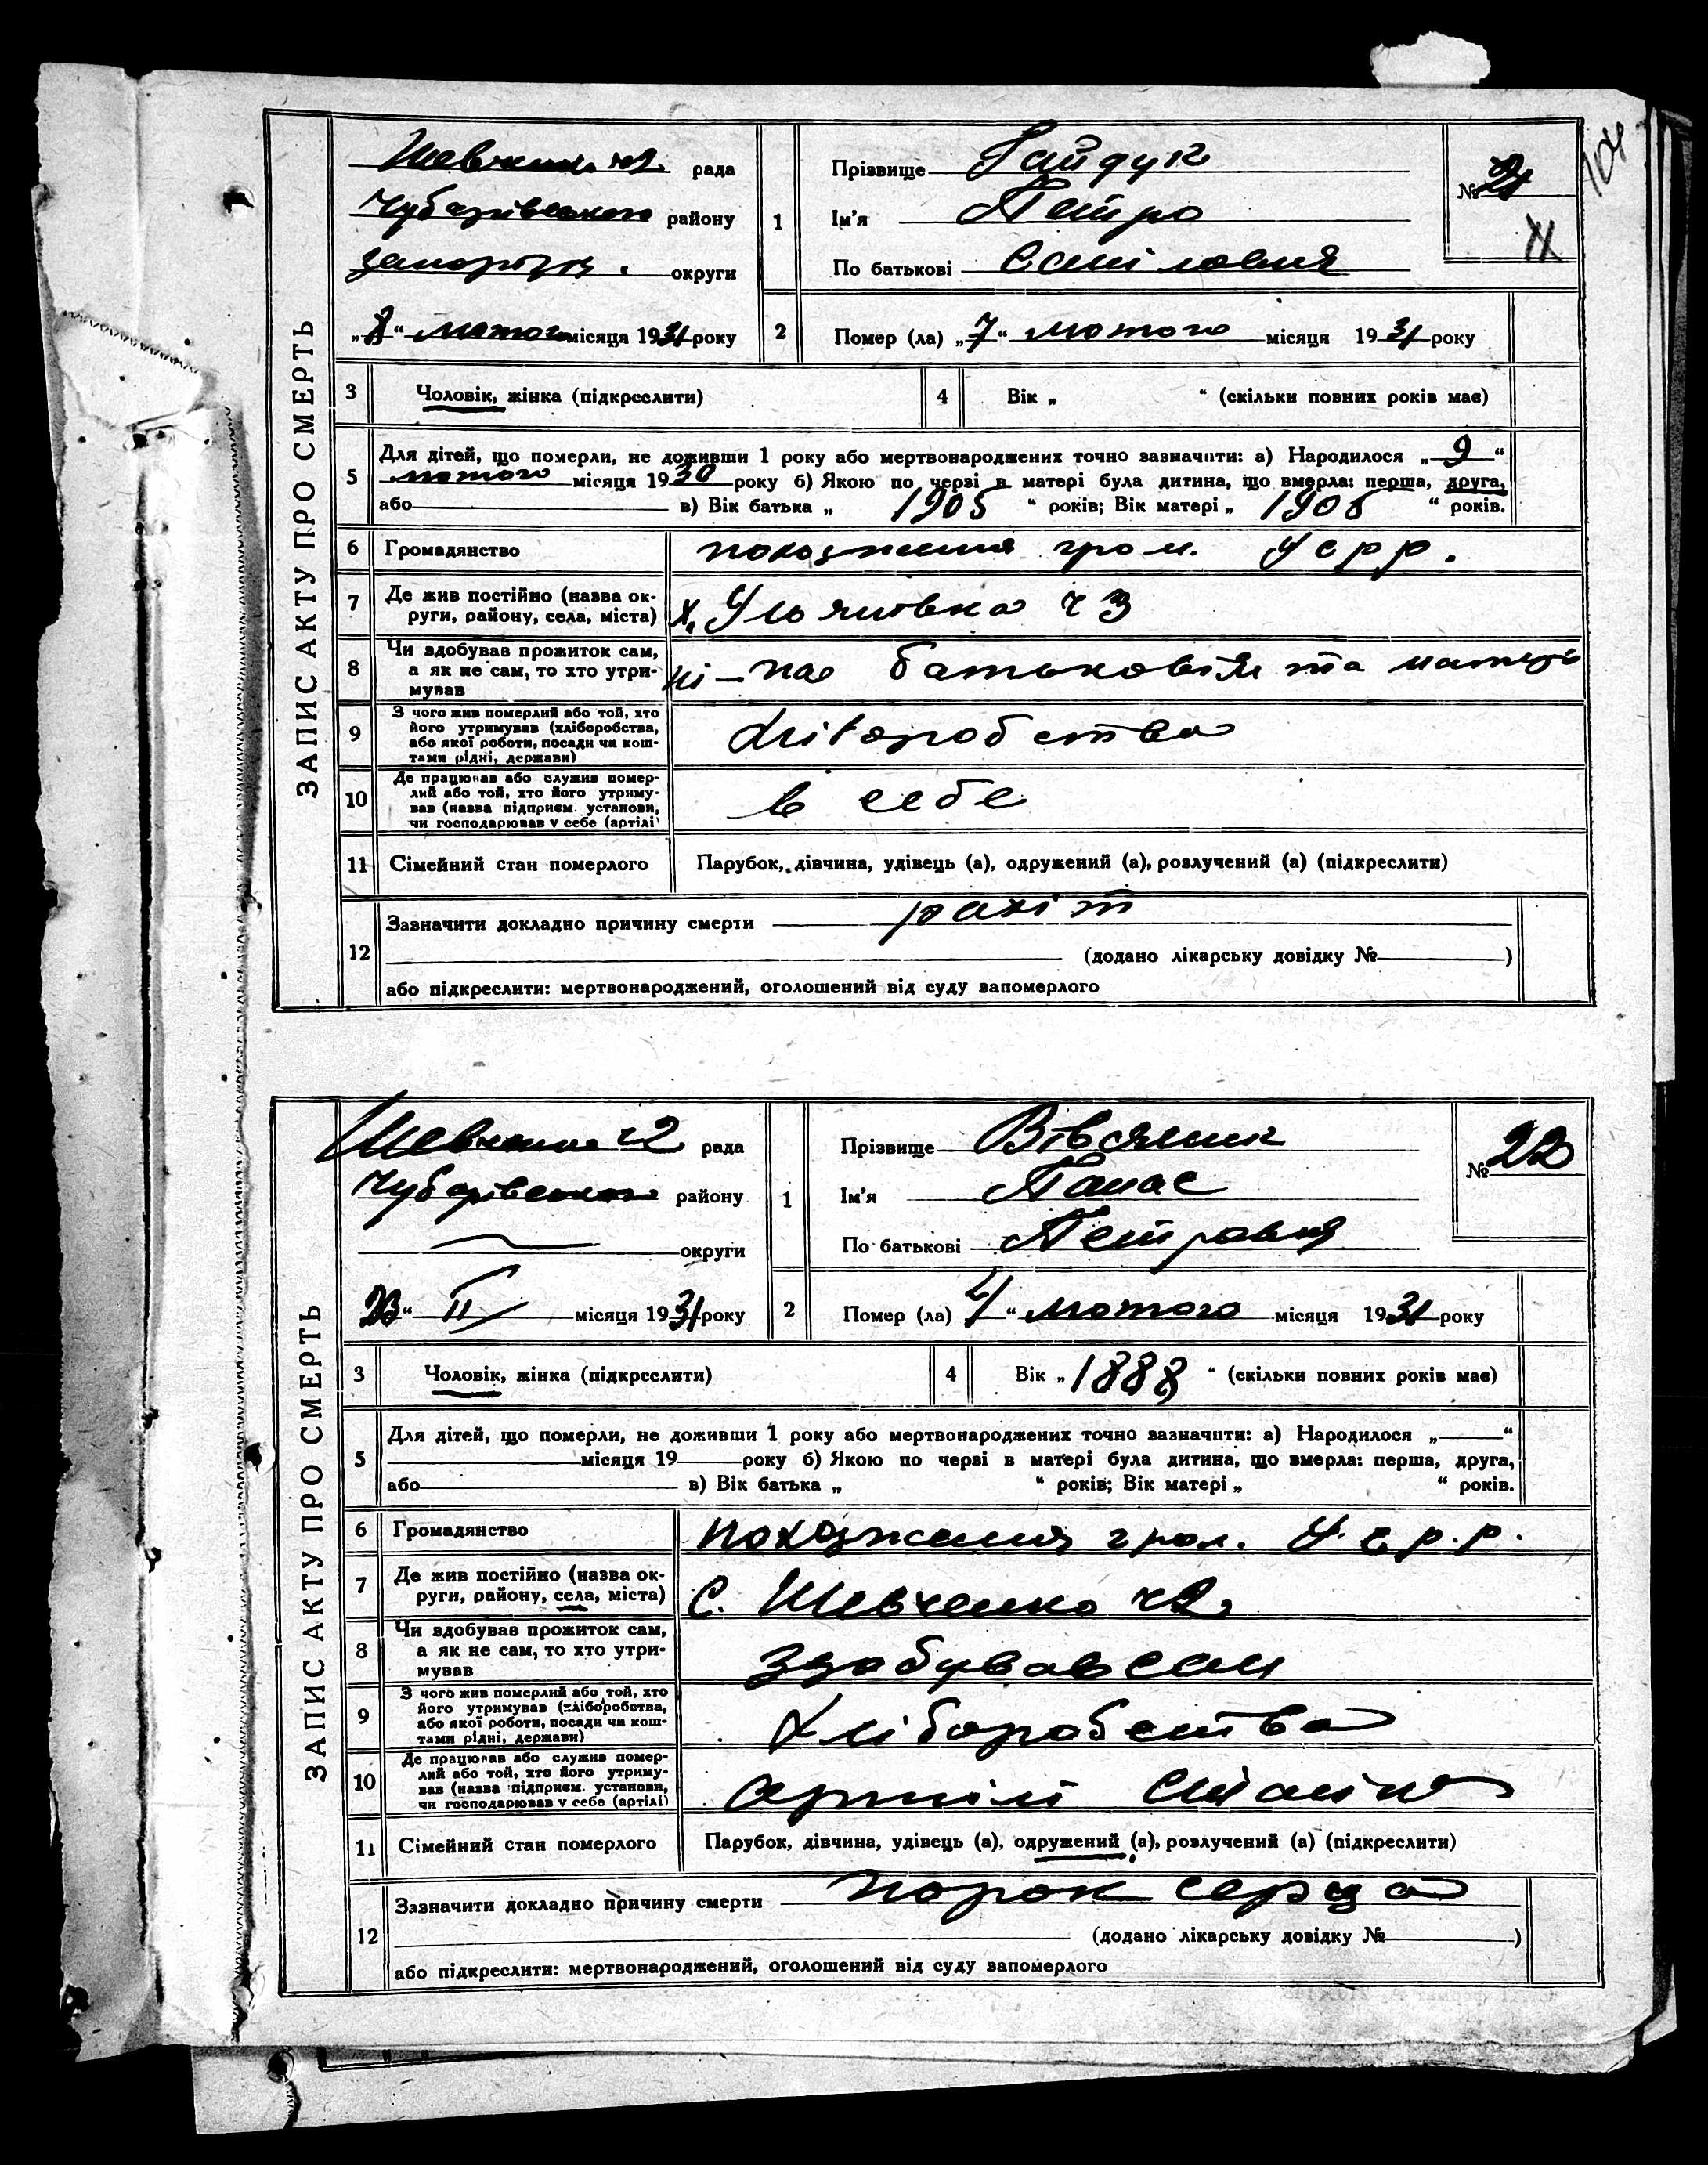 104
ЗАПИС АКТУ ПРО СМЕРТЬ
Шевченк. ч2. рада
Чубарівського району
запоріжж. округи
„8“ лютого місяця 1931 року
1
Прізвище Гайдук
Ім'я Петро
По батькові
№ 21
2
Помер (ла) „7“ лютого місяця 1931 року
3
Чоловік, жінка (підкреслити)
4
Вік „ “ (скільки повних років має)
5
Для дітей, що померли, не доживши 1 року або мертвонароджених точно зазначити: а) Народилося „9“
лютого місяця 1930 року б) Якою по черзі в матері була дитина, що вмерла: перша, друга,
або в) Вік батька „ 1905 “ років; Вік матері „ 1906 “ років.
6
Громадянство
походження гром. Усрр.
7
Де жив постійно (назва ок-
руги, району, села, міста)
х. Ульянівка ч 3
8
Чи здобував прожиток сам,
а як не сам, то хто утри-
мував
ні – батьковія та матирі
9
З чого жив померлий або той, хто
його утримував (хліборобства,
або якої роботи, посади чи кош-
тами рідні, держави)
Хліборобства
10
Де працював або служив помер-
лий або той, хто його утриму-
вав (назва підприєм. установи,
чи господарював у себе (артілі)
в себе
11
Сімейний стан померлого
Парубок, дівчина, удівець (а), одружений (а), розлучений (а) (підкреслити)
12
Зазначити докладно причину смерти рахіт
(додано лікарську довідку № )
або підкреслити: мертвонароджений, оголошений від суду запомерлого
ЗАПИС АКТУ ПРО СМЕРТЬ
Шевченк ч2 рада
Чубарівського району
округи
„23“ II місяця 1931 року
1
Прізвище Вівсяник
Ім'я Панас
По батькові Петровия
№ 22
2
Помер (ла) 4“ лютого місяця 1931 року
3
Чоловік, жінка (підкреслити)
4
Вік „1888“ (скільки повних років має)
5
Для дітей, що померли, не доживши 1 року або мертвонароджених точно зазначити: а) Народилося „ “
місяця 19 року б) Якою по черзі в матері була дитина, що вмерла: перша, друга,
або в) Вік батька „ “ років; Вік матері „ “ років.
6
Громадянство
походження гром. У.с.р.р.
7
Де жив постійно (назва ок-
руги, району, села, міста)
С. Шевченко ч2
8
Чи здобував прожиток сам,
а як не сам, то хто утри-
мував
здобував сам
9
З чого жив померлий або той, хто
його утримував (хліборобства,
або якої роботи, посади чи кош-
тами рідні, держави)
Хліборобства
10
Де працював або служив помер-
лий або той, хто його утриму-
вав (назва підприєм. установи,
чи господарював у себе (артілі)
артілі Сталіна
11
Сімейний стан померлого
Парубок, дівчина, удівець (а), одружений (а), розлучений (а) (підкреслити)
12
Зазначити докладно причину смерти порок серца
(додано лікарську довідку № )
або підкреслити: мертвонароджений, оголошений від суду запомерлого